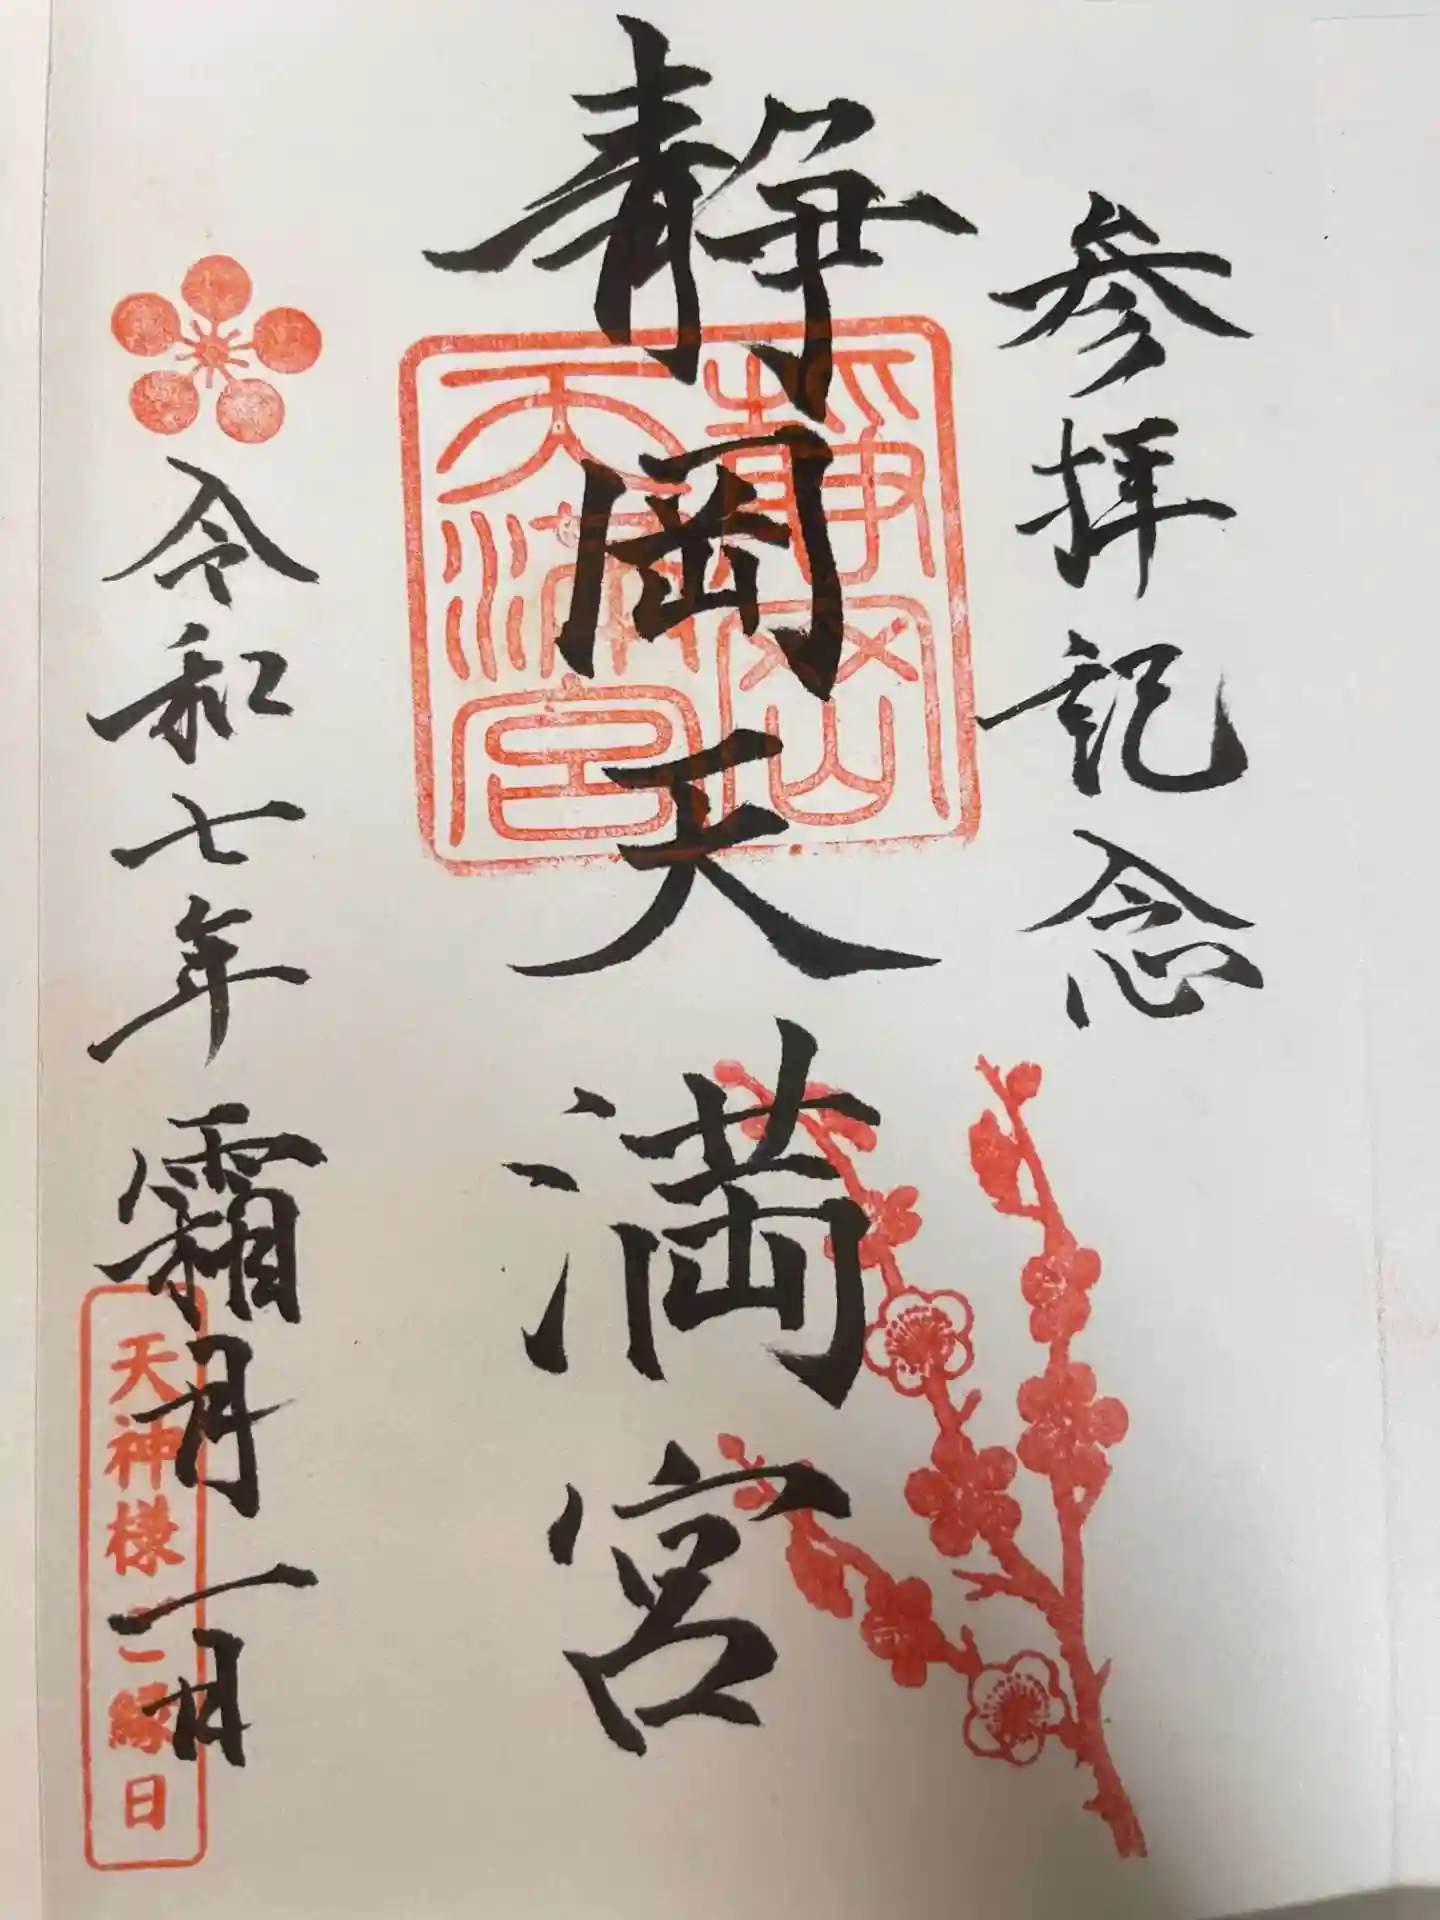 参拝記念
静岡天満宮
静岡
天満宮
令和七年霜月一日
天神様ご縁日